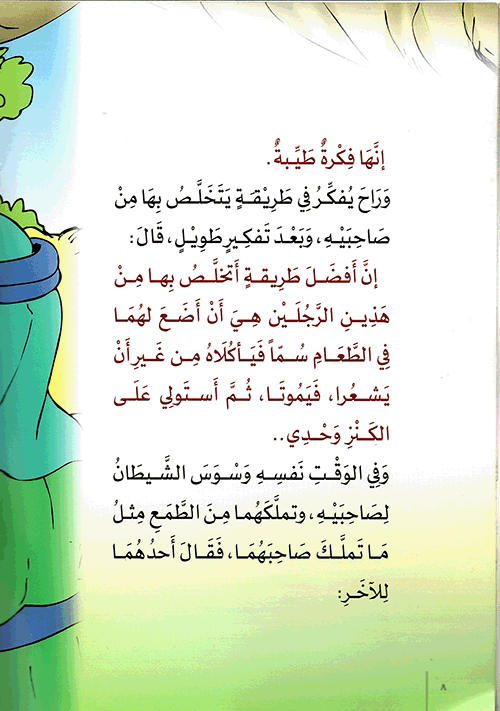 إِنَّهَا فِكْرةٌ طَيِّبةٌ.
وَرَاحَ يُفكِّرُ فِي طَرِيْقَةٍ يَتَخَلَّصُ بِهَا مِنْ
صَاحِبَيْهِ، وَبَعْدَ تَفكِيرٍ طَوِيْلٍ، قَالَ:
إنَّ أَفضَلَ طَرِيقةٍ أَتخلَّصُ بِهـا مِـنْ
هَذِينِ الرَّجُلَيْنِ هِيَ أَنْ أَضَعَ لهُمَا
فِي الطَّعَامِ سُمّاً فَيَأكُلَاهُ مِن غَيرِ أَنْ
يَشعُرا، فَيَمُوتَا، ثُمَّ أَستَولِي عَلَى
الكَنْزِ وَحْدِي..
وَفِي الوَقْتِ نَفسِهِ وَسْوَسَ الشَّيطَانُ
لِصَاحِبَيْهِ، وتملَّكَهُما مِنَ الطَّمَعِ مِثلُ
مَا تَملَّكَ صَاحِبَهُمَا، فَقَالَ أَحدُهُمَا
لِلآخَرِ:
٨